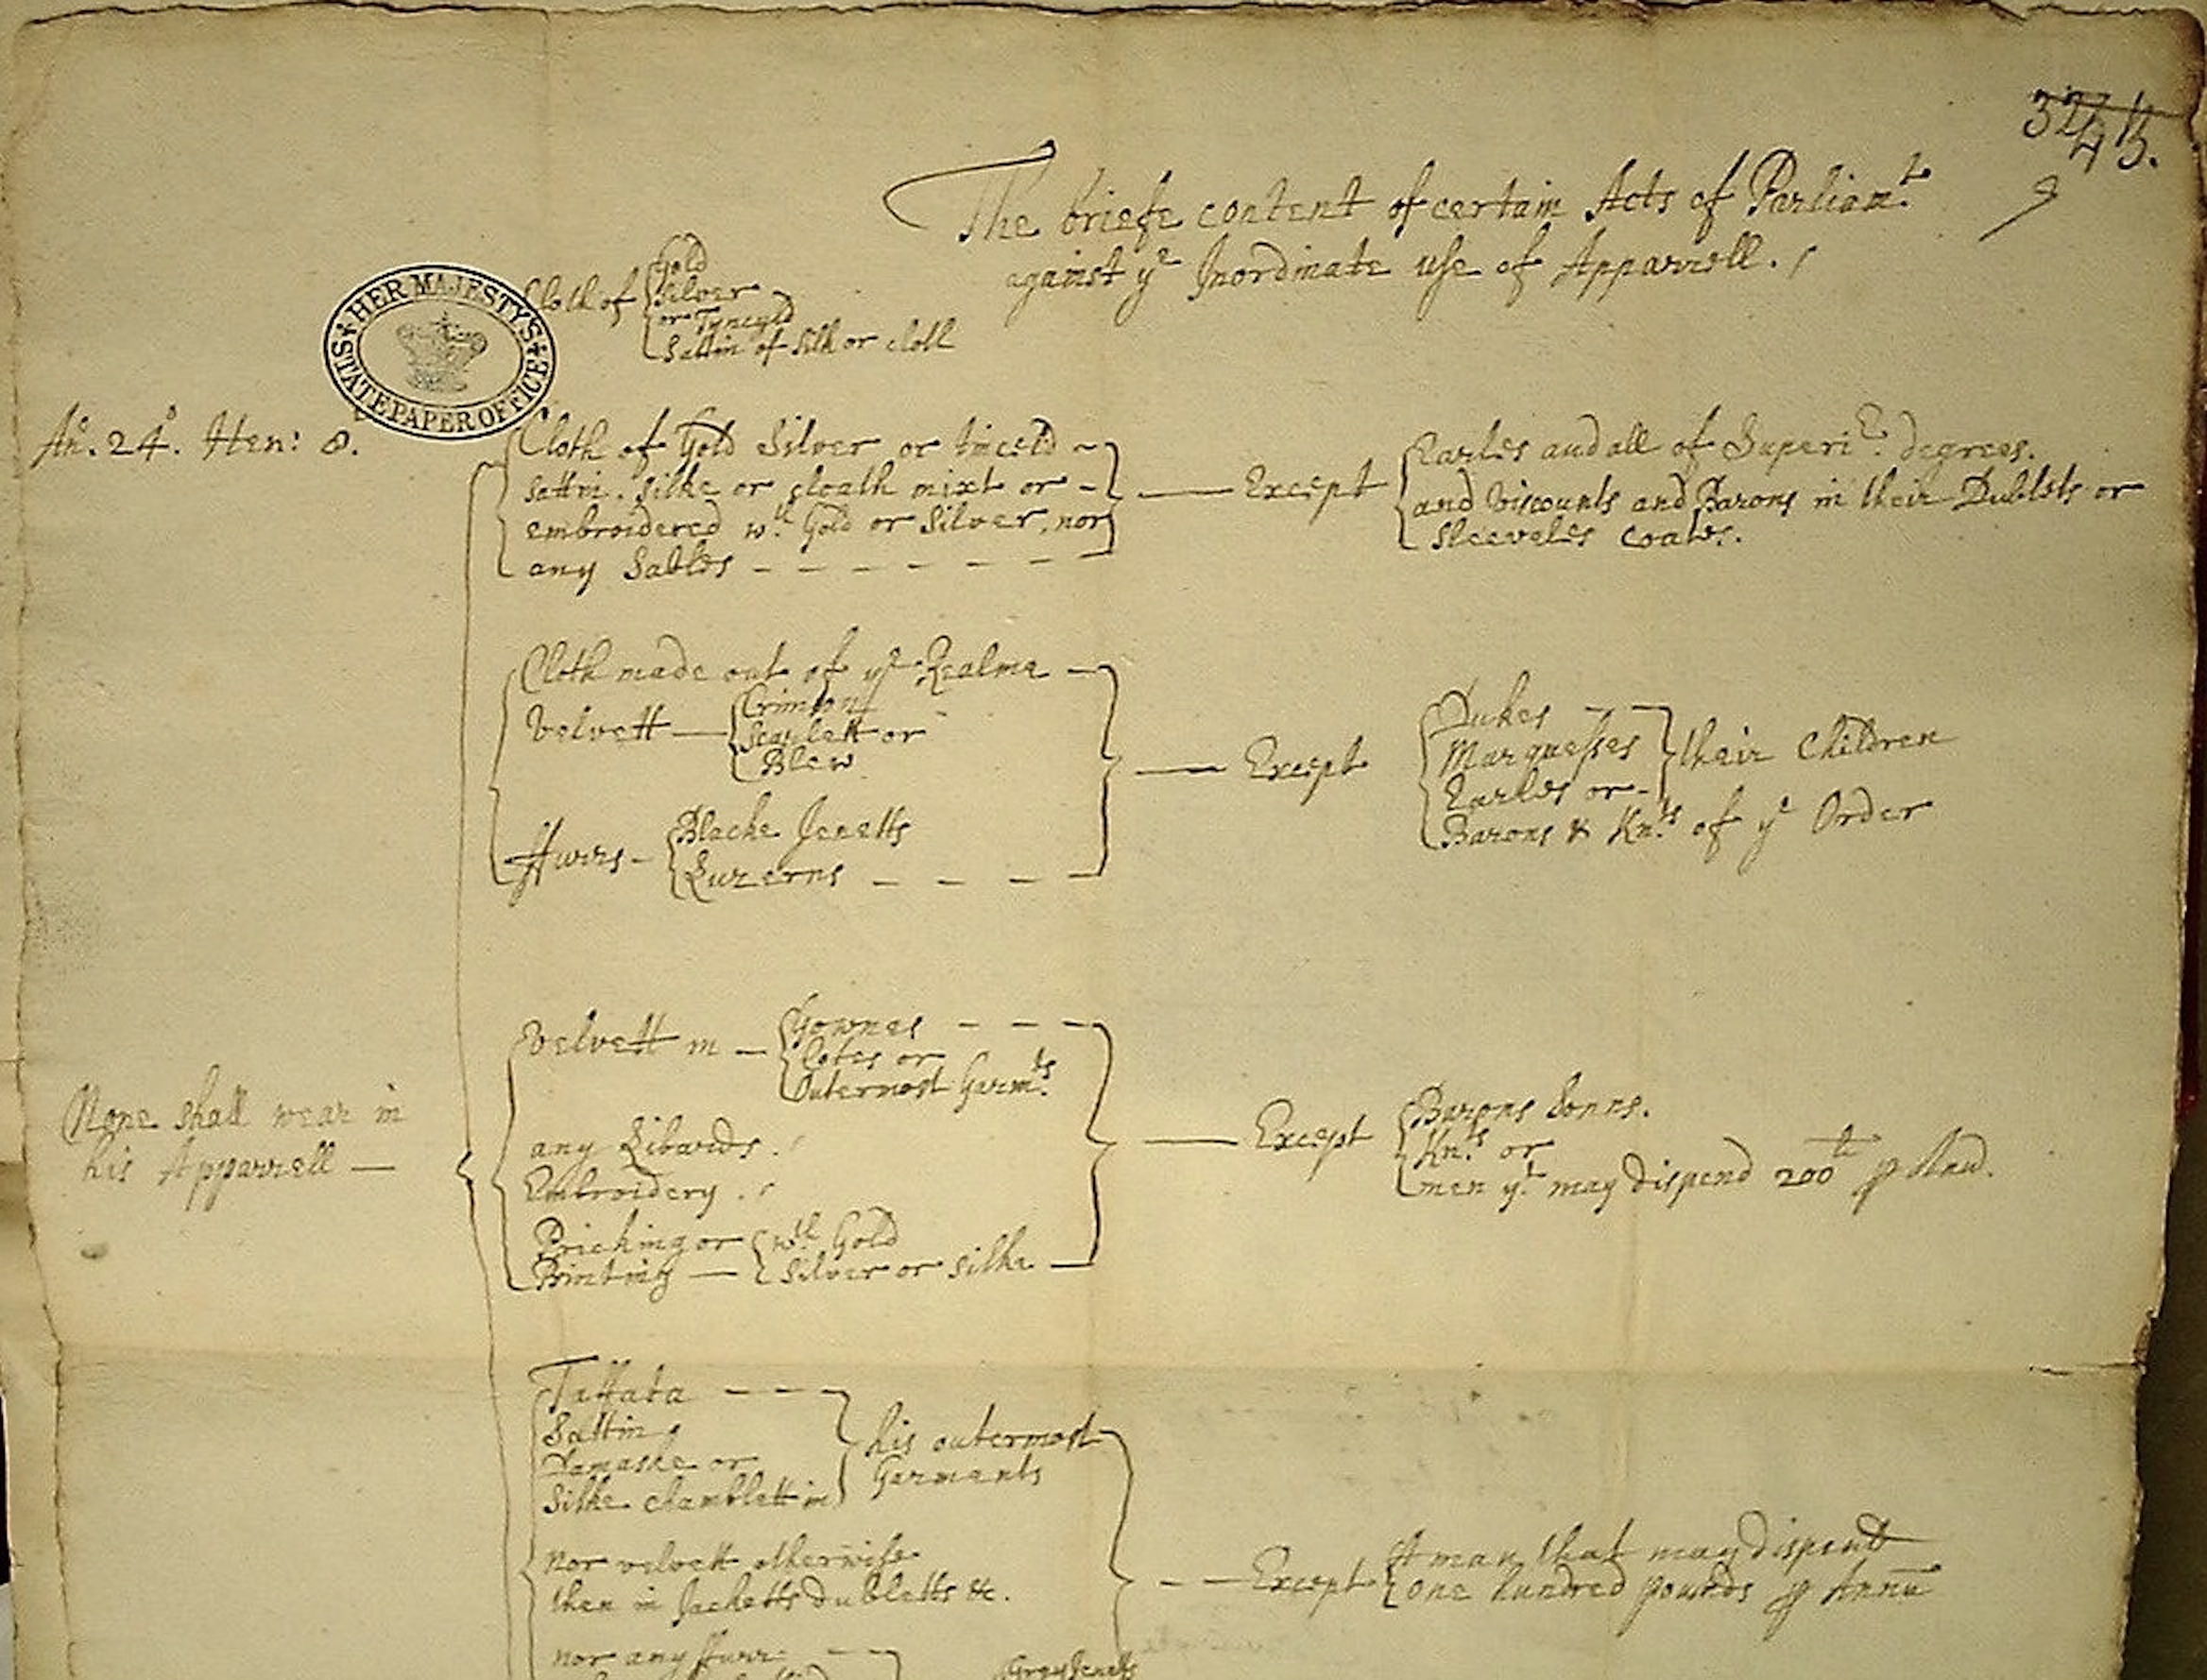 The briefe content of certain Acts of Parliamt.
against ye Inordinate use of Apparrell.
Cloth of
Gold
Silver
or Tynceld
Sattin of Silk or cloth
HER MAJESTY'S
STATE PAPER OFFICE
An. 24o. Hen: 8.
Cloth of Gold Silver or tinceld
Sattin. Silke or cloath mixt or
embroidered wth. Gold or Silver, nor
any Sables
Except
Earles and all of Superir. degrees.
and Viscounts and Barons in their Dublets or
Sleeveles coates.
Cloth made out of ye Realme
Velvett
Crimson
Scarlett or
Blew
Furrs
Blacke Jenetts
Luzerns
Except
Dukes
Marquesses
Earles or
their Children
Barons & Knts. of ye Order
None shall wear in
his Apparrell
Velvett in
Gownes
Cotes or
Outermost Garmts.
any Libards.
Embroidery.
Pricking or
Printing
wth Gold
Silver or silke
Except
Barons Sonns.
Knts. or
men yt. may dispend 200li p Ann.
Taffata
Sattin
Damaske or
Silke chamblett in
his outermost
Garments
nor velvett otherwise
then in Jacketts dubletts &c.
Except
A man that may dispend
one hundred pounds p Annu
nor any Furr
Gray Jenetts